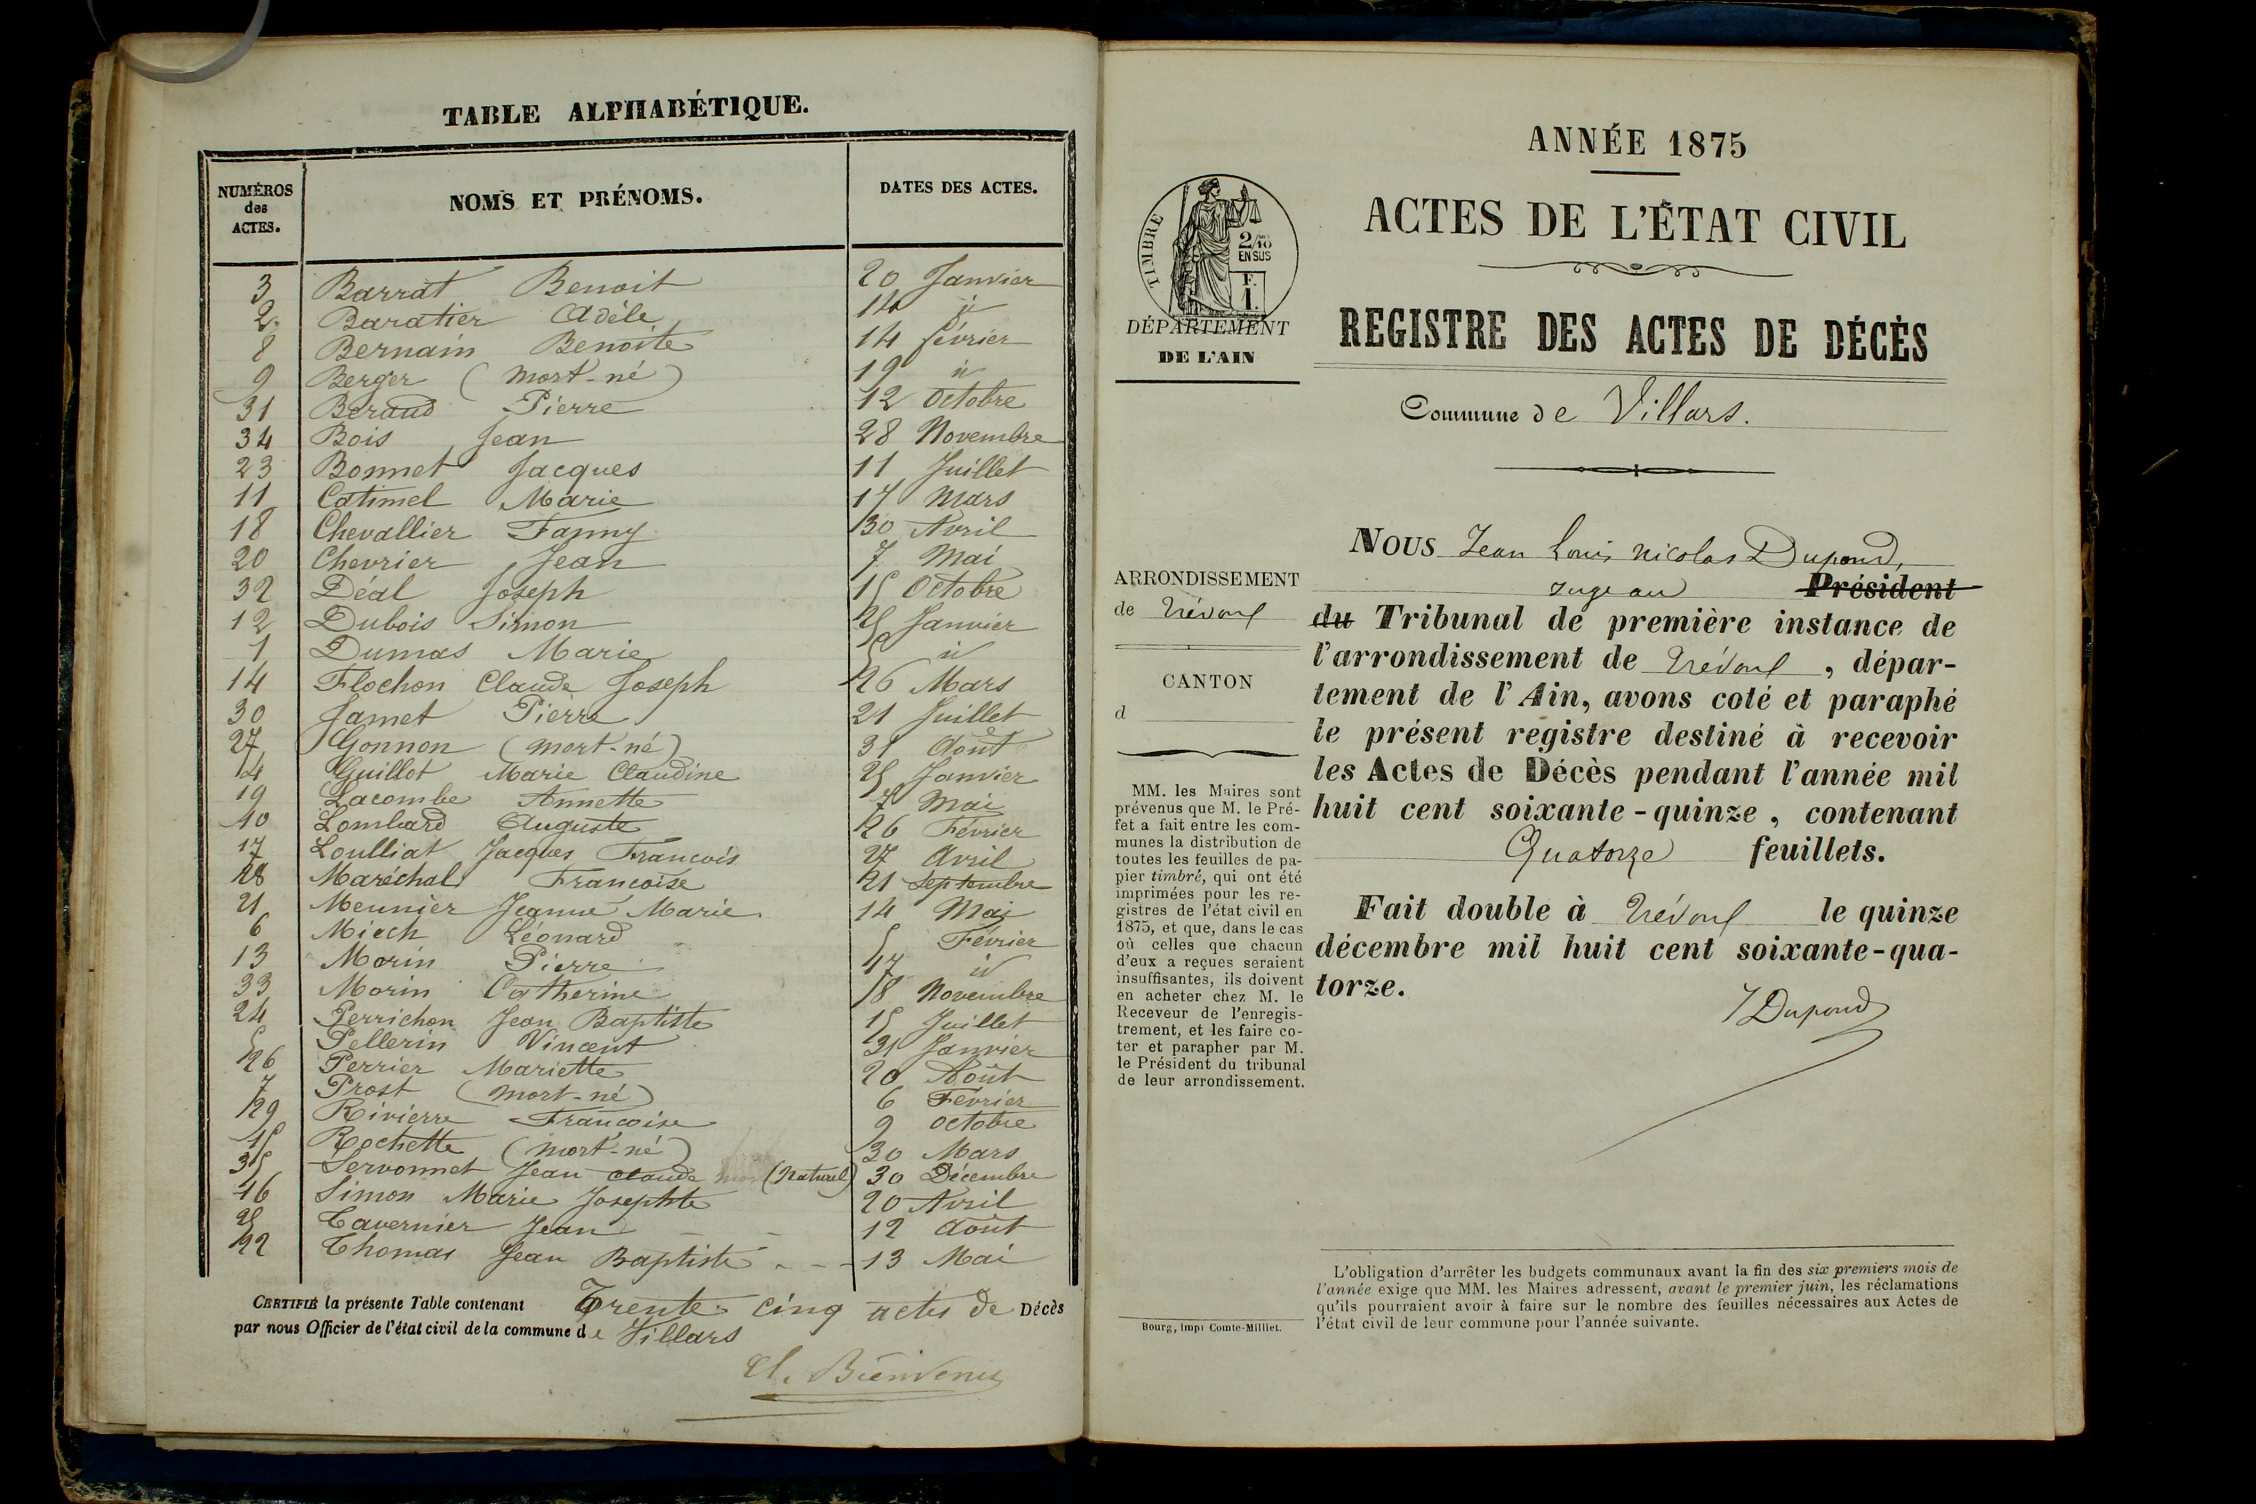 TABLE ALPHABÉTIQUE.
NUMÉROS des ACTES. NOMS ET PRÉNOMS. DATES DES ACTES.
3 Barrat Benoit 20 Janvier
2 Baratier Adèle 14 id
8 Bernain Benoite 14 février
9 Berger (mort-né) 19 id
31 Beraud Pierre 12 Octobre
34 Bois Jean 28 Novembre
23 Bonnet Jacques 11 Juillet
11 Catimel Marie 17 Mars
18 Chevallier Fanny 30 Avril
20 Chevrier Jean 7 Mai
32 Déal Joseph 15 Octobre
12 Dubois Simon 25 Janvier
1 Dumas Marie 5 id
14 Flochon Claude Joseph 26 Mars
30 Jamet Pierre 21 Juillet
27 Gonnon (mort-né) 31 Août
4 Guillot Marie Claudine 25 Janvier
19 Lacombe Annette 7 Mai
10 Lombard Auguste 26 Février
17 Loulliat Jacques François 27 Avril
28 Maréchal Françoise 21 Septembre
21 Meunier Jeanne Marie 14 Mai
6 Miech Léonard 5 Février
13 Morin Pierre 17 id
33 Morin Catherine 18 Novembre
24 Perrichon Jean Baptiste 15 Juillet
5 Pellerin Vincent 31 Janvier
26 Perrier Mariette 20 Août
7 Prost (mort-né) 6 Février
29 Rivierre Françoise 9 octobre
15 Rochette (mort-né) 30 Mars
35 Servonnet Jean Claude (Naturel) 30 Décembre
16 Simon Marie Josephte 20 Avril
25 Tavernier Jean 12 Août
22 Thomas Jean Baptiste 13 Mai
CERTIFIÉ la présente Table contenant Trente cinq actes de Décès
par nous Officier de l'état civil de la commune de Villars
Cl. Bienvenu
ANNÉE 1875
ACTES DE L'ÉTAT CIVIL
TIMBRE
2/10
EN SUS
F.
1.
DÉPARTEMENT
DE L'AIN
REGISTRE DES ACTES DE DÉCÈS
Commune de Villars.
ARRONDISSEMENT
de Trévoux
CANTON
d
MM. les Maires sont
prévenus que M. le Pré-
fet a fait entre les com-
munes la distribution de
toutes les feuilles de pa-
pier timbré, qui ont été
imprimées pour les re-
gistres de l'état civil en
1875, et que, dans le cas
où celles que chacun
d'eux a reçues seraient
insuffisantes, ils doivent
en acheter chez M. le
Receveur de l'enregis-
trement, et les faire co-
ter et parapher par M.
le Président du tribunal
de leur arrondissement.
Nous Jean Louis Nicolas Dupond,
Juge au Président
du Tribunal de première instance de
l'arrondissement de Trévoux, dépar-
tement de l'Ain, avons coté et paraphé
le présent registre destiné à recevoir
les Actes de Décès pendant l'année mil
huit cent soixante-quinze, contenant
Quatorze feuillets.
Fait double à Trévoux le quinze
décembre mil huit cent soixante-qua-
torze.
J Dupond
L'obligation d'arrêter les budgets communaux avant la fin des six premiers mois de
l'année exige que MM. les Maires adressent, avant le premier juin, les réclamations
qu'ils pourraient avoir à faire sur le nombre des feuilles nécessaires aux Actes de
l'état civil de leur commune pour l'année suivante.
Bourg, impr Comte-Milliet.